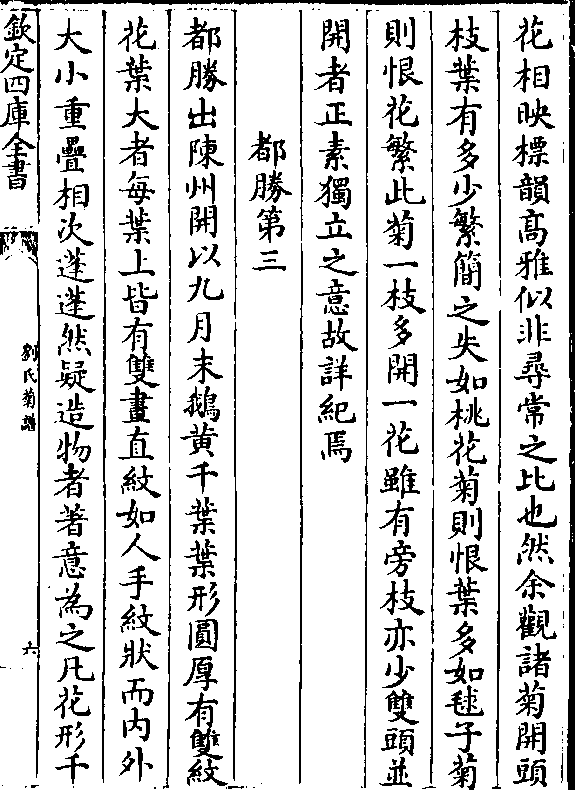 花相映標韻髙雅似非尋常之比也然余觀諸菊開頭
枝葉有多少繁簡之失如桃花菊則恨葉多如毬子菊
則恨花繁此菊一枝多開一花雖有旁枝亦少雙頭並
開者正素獨立之意故詳紀焉
都勝第三
都勝出陳州開以九月末鵝黄千葉葉形圓厚有雙紋
花葉大者每葉上皆有雙畫直紋如人手紋狀而内外
大小重疊相次蓬蓬然疑造物者著意為之凡花形千
欽定四庫全書
劉氏菊譜
六